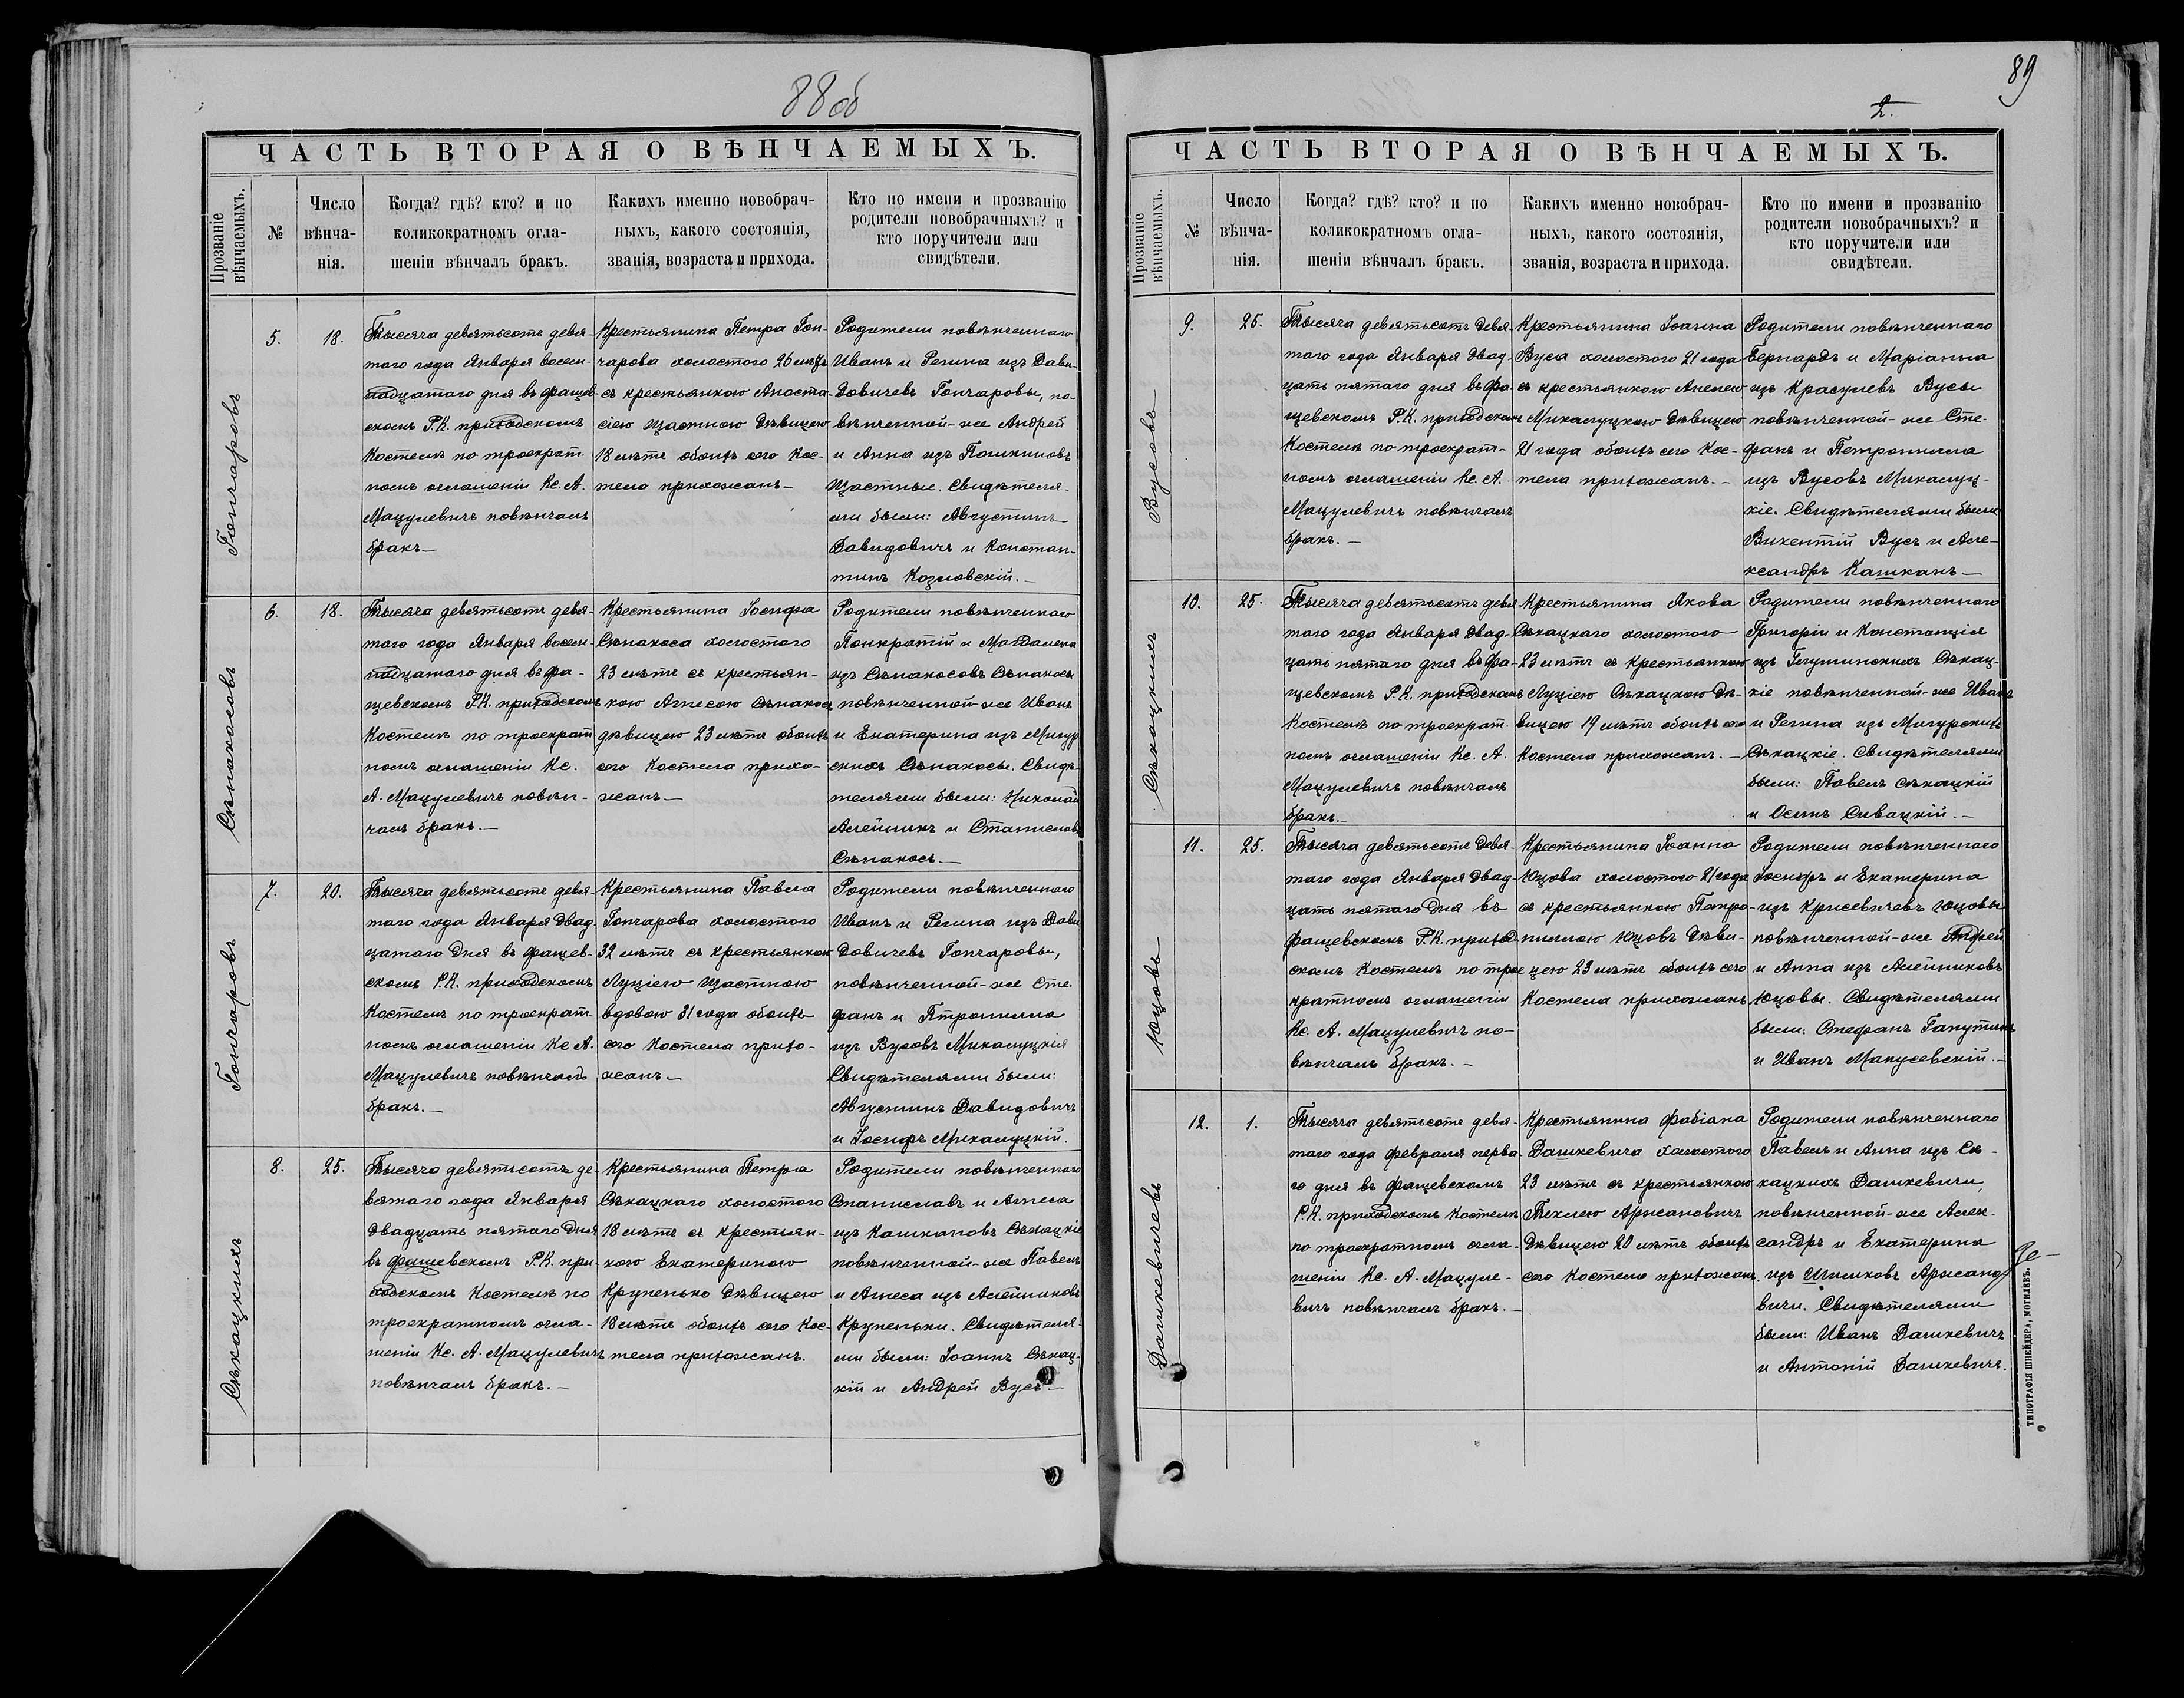 88 об
ЧАСТЬ ВТОРАЯ О ВѢНЧАЕМЫХЪ.
Прозваніе вѣнчаемыхъ.
№
Число вѣнча-
нія.
Когда? гдѣ? кто? и по
коликократномъ огла-
шеніи вѣнчалъ бракъ.
Какихъ именно новобрач-
ныхъ, какого состоянія,
званія, возраста и прихода.
Кто по имени и прозванію
родители новобрачныхъ? и
кто поручители или
свидѣтели.
Гончаровъ
5.
18.
Тысяча девятьсотъ девя-
таго года Января восем-
надцатаго дня въ Фащев-
скомъ Р.К. приходскомъ
Костелѣ по троекрат-
номъ оглашеніи Кс. А.
Мацулевичъ повѣнчалъ
бракъ.—
Крестьянина Петра Гон-
чарова холостого 26 лѣтъ
съ крестьянкою Анаста-
сіею Щастною дѣвицею
18 лѣтъ обоихъ сего Кос-
тела прихожанъ—
Родители повѣнченнаго
Иванъ и Регина изъ Дави-
довичевъ Гончаровы, по-
вѣнченной-же Андрей
и Анна изъ Пашкиновъ
Щастные. Свидѣтеля-
ми были: Августинъ
Давидовичъ и Констан-
тинъ Козловскій.—
Сѣнакосовъ
6.
18.
Тысяча девятьсотъ девя-
таго года Января восем-
надцатаго дня въ Фа-
щевскомъ Р.К. приходскомъ
Костелѣ по троекрат
номъ оглашеніи Кс.
А. Мацулевичъ повѣн-
чалъ бракъ.—
Крестьянина Іосифа
Сѣнакоса холостого
23 лѣтъ съ крестьян-
кою Агнесою Сѣнакосъ
дѣвицею 23 лѣтъ обоихъ
сего Костела прихо-
жанъ—
Родители повѣнченнаго
Панкратій и Магдалена
изъ Сѣнакосовъ Сѣнакосы
повѣнченной-же Иванъ
и Екатерина изъ Мигур
скихъ Сѣнакосы. Свидѣ-
телями были: Николай
Алейникъ и Станиславъ
Сѣнакосъ.—
Гончаровъ
7.
20.
Тысяча девятьсотъ девя-
таго года Января двад-
цатаго дня въ Фащев-
скомъ Р.К. приходскомъ
Костелѣ по троекрат-
номъ оглашеніи Кс А.
Мацулевичъ повѣнчалъ
бракъ.—
Крестьянина Павла
Гончарова холостого
32 лѣтъ съ крестьянкою
Луціею Щастною
вдовою 31 года обоихъ
сего Костела прихо-
жанъ—
Родители повѣнченнаго
Иванъ и Регина изъ Дави
довичевъ Гончаровы,
повѣнченной-же Сте-
фанъ и Птронилла
изъ Вусовъ Михалуцкія
Свидѣтелями были:
Августинъ Давидовичъ
и Іосифъ Михалуцкій.
Сѣкацкихъ
8.
25.
Тысяча девятьсотъ де-
вятаго года Января
двадцать пятаго дня
въ Фащевскомъ Р.К. при-
ходскомъ Костелѣ по
троекратномъ огла-
шеніи Кс. А. Мацулевичъ
повѣнчалъ бракъ.—
Крестьянина Петра
Сѣкацкаго холостого
18 лѣтъ съ крестьян-
кою Екатериною
Крупенько дѣвицею
18 лѣтъ обоихъ сего Кос-
тела прихожанъ.
Родители повѣнченнаго
Станиславъ и Агнеса
изъ Кашкановъ Сѣкацкіе
повѣнченной-же Павелъ
и Агнеса изъ Алейниковъ
Крупеньки. Свидѣтеля-
ми были: Іоаннъ Сѣкац-
кій и Андрей Вусъ.—
89
2.
ЧАСТЬ ВТОРАЯ О ВѢНЧАЕМЫХЪ.
Прозваніе вѣнчаемыхъ.
№
Число вѣнча-
нія.
Когда? гдѣ? кто? и по
коликократномъ огла-
шеніи вѣнчалъ бракъ.
Какихъ именно новобрач-
ныхъ, какого состоянія,
званія, возраста и прихода.
Кто по имени и прозванію
родители новобрачныхъ? и
кто поручители или
свидѣтели.
Вусовъ
9.
25.
Тысяча девятьсотъ девя-
таго года Января двад-
цать пятаго дня въ Фа-
щевскомъ Р.К. приходскомъ
Костелѣ по троекрат-
номъ оглашеніи Кс. А.
Мацулевичъ повѣнчалъ
бракъ.—
Крестьянина Іоанна
Вуса холостого 21 года
съ крестьянкою Анелею
Михалуцкою дѣвицею
21 года обоихъ сего Кос-
тела прихожанъ.—
Родители повѣнченнаго
Бернардъ и Маріанна
изъ Красулевъ Вусы
повѣнченной-же Сте-
фанъ и Петронилла
изъ Вусовъ Михалуц-
кіе. Свидѣтелями были
Викентій Вусъ и Але-
ксандръ Кашканъ—
Сѣкацкихъ
10.
25.
Тысяча девятьсотъ девя
таго года Января двад-
цать пятаго дня въ Фа-
щевскомъ Р.К. приходскомъ
Костелѣ по троекрат-
номъ оглашеніи Кс. А.
Мацулевичъ повѣнчалъ
бракъ.—
Крестьянина Якова
Сѣкацкаго холостого
23 лѣтъ съ крестьянкою
Луціею Сѣкацкою дѣ-
вицею 19 лѣтъ обоихъ сего
Костела прихожанъ.—
Родители повѣнченнаго
Григорій и Констанція
изъ Сѣкац-
кіе повѣнченной-же Иванъ
и Регина изъ Мигурскихъ
Сѣкацкіе. Свидѣтелями
были: Павелъ Сѣкацкій
и Осипъ Сивацкій.—
Юцовъ
11.
25.
Тысяча девятьсотъ девя-
таго года Января двад-
цать пятаго дня въ
Фащевскомъ Р.К. приход-
скомъ Костелѣ по трое
кратномъ оглашеніи
Кс. А. Мацулевичъ по-
вѣнчалъ бракъ.—
Крестьянина Іоанна
Юцова холостого 21 года
съ крестьянкою Петро-
ниллою Юцовъ дѣви-
цею 23 лѣтъ обоихъ сего
Костела прихожанъ
Родители повѣнченнаго
Іосифъ и Екатерина
изъ Крисевичевъ Юцовы
повѣнченной-же Андрей
и Анна изъ Алейниковъ
Юцовы. Свидѣтелями
были: Стефанъ Гапутинъ
и Иванъ Манусевскій.—
Дашкевичевъ
12.
1.
Тысяча девятьсотъ девя-
таго года Февраля перва-
го дня въ Фащевскомъ
Р.К. приходскомъ Костелѣ
по троекратномъ огла-
шеніи Кс. А. Мацуле-
вичъ повѣнчалъ бракъ.—
Крестьянина Фабіана
Дашкевича холостого
23 лѣтъ съ крестьянкою
Теклею Аржановичъ
дѣвицею 20 лѣтъ обоихъ
сего Костела прихожанъ.
Родители повѣнченнаго
Павелъ и Анна изъ Сѣ-
кацкихъ Дашкевичи,
повѣнченной-же Алек-
сандръ и Екатерина
изъ Шиликовъ Аржано
вичи. Свидѣтелями
были: Иванъ Дашкевичъ
и Антоній Дашкевичъ.
ТИПОГРАФІЯ ШНЕЙДЕРА, МОГИЛЕВЪ.